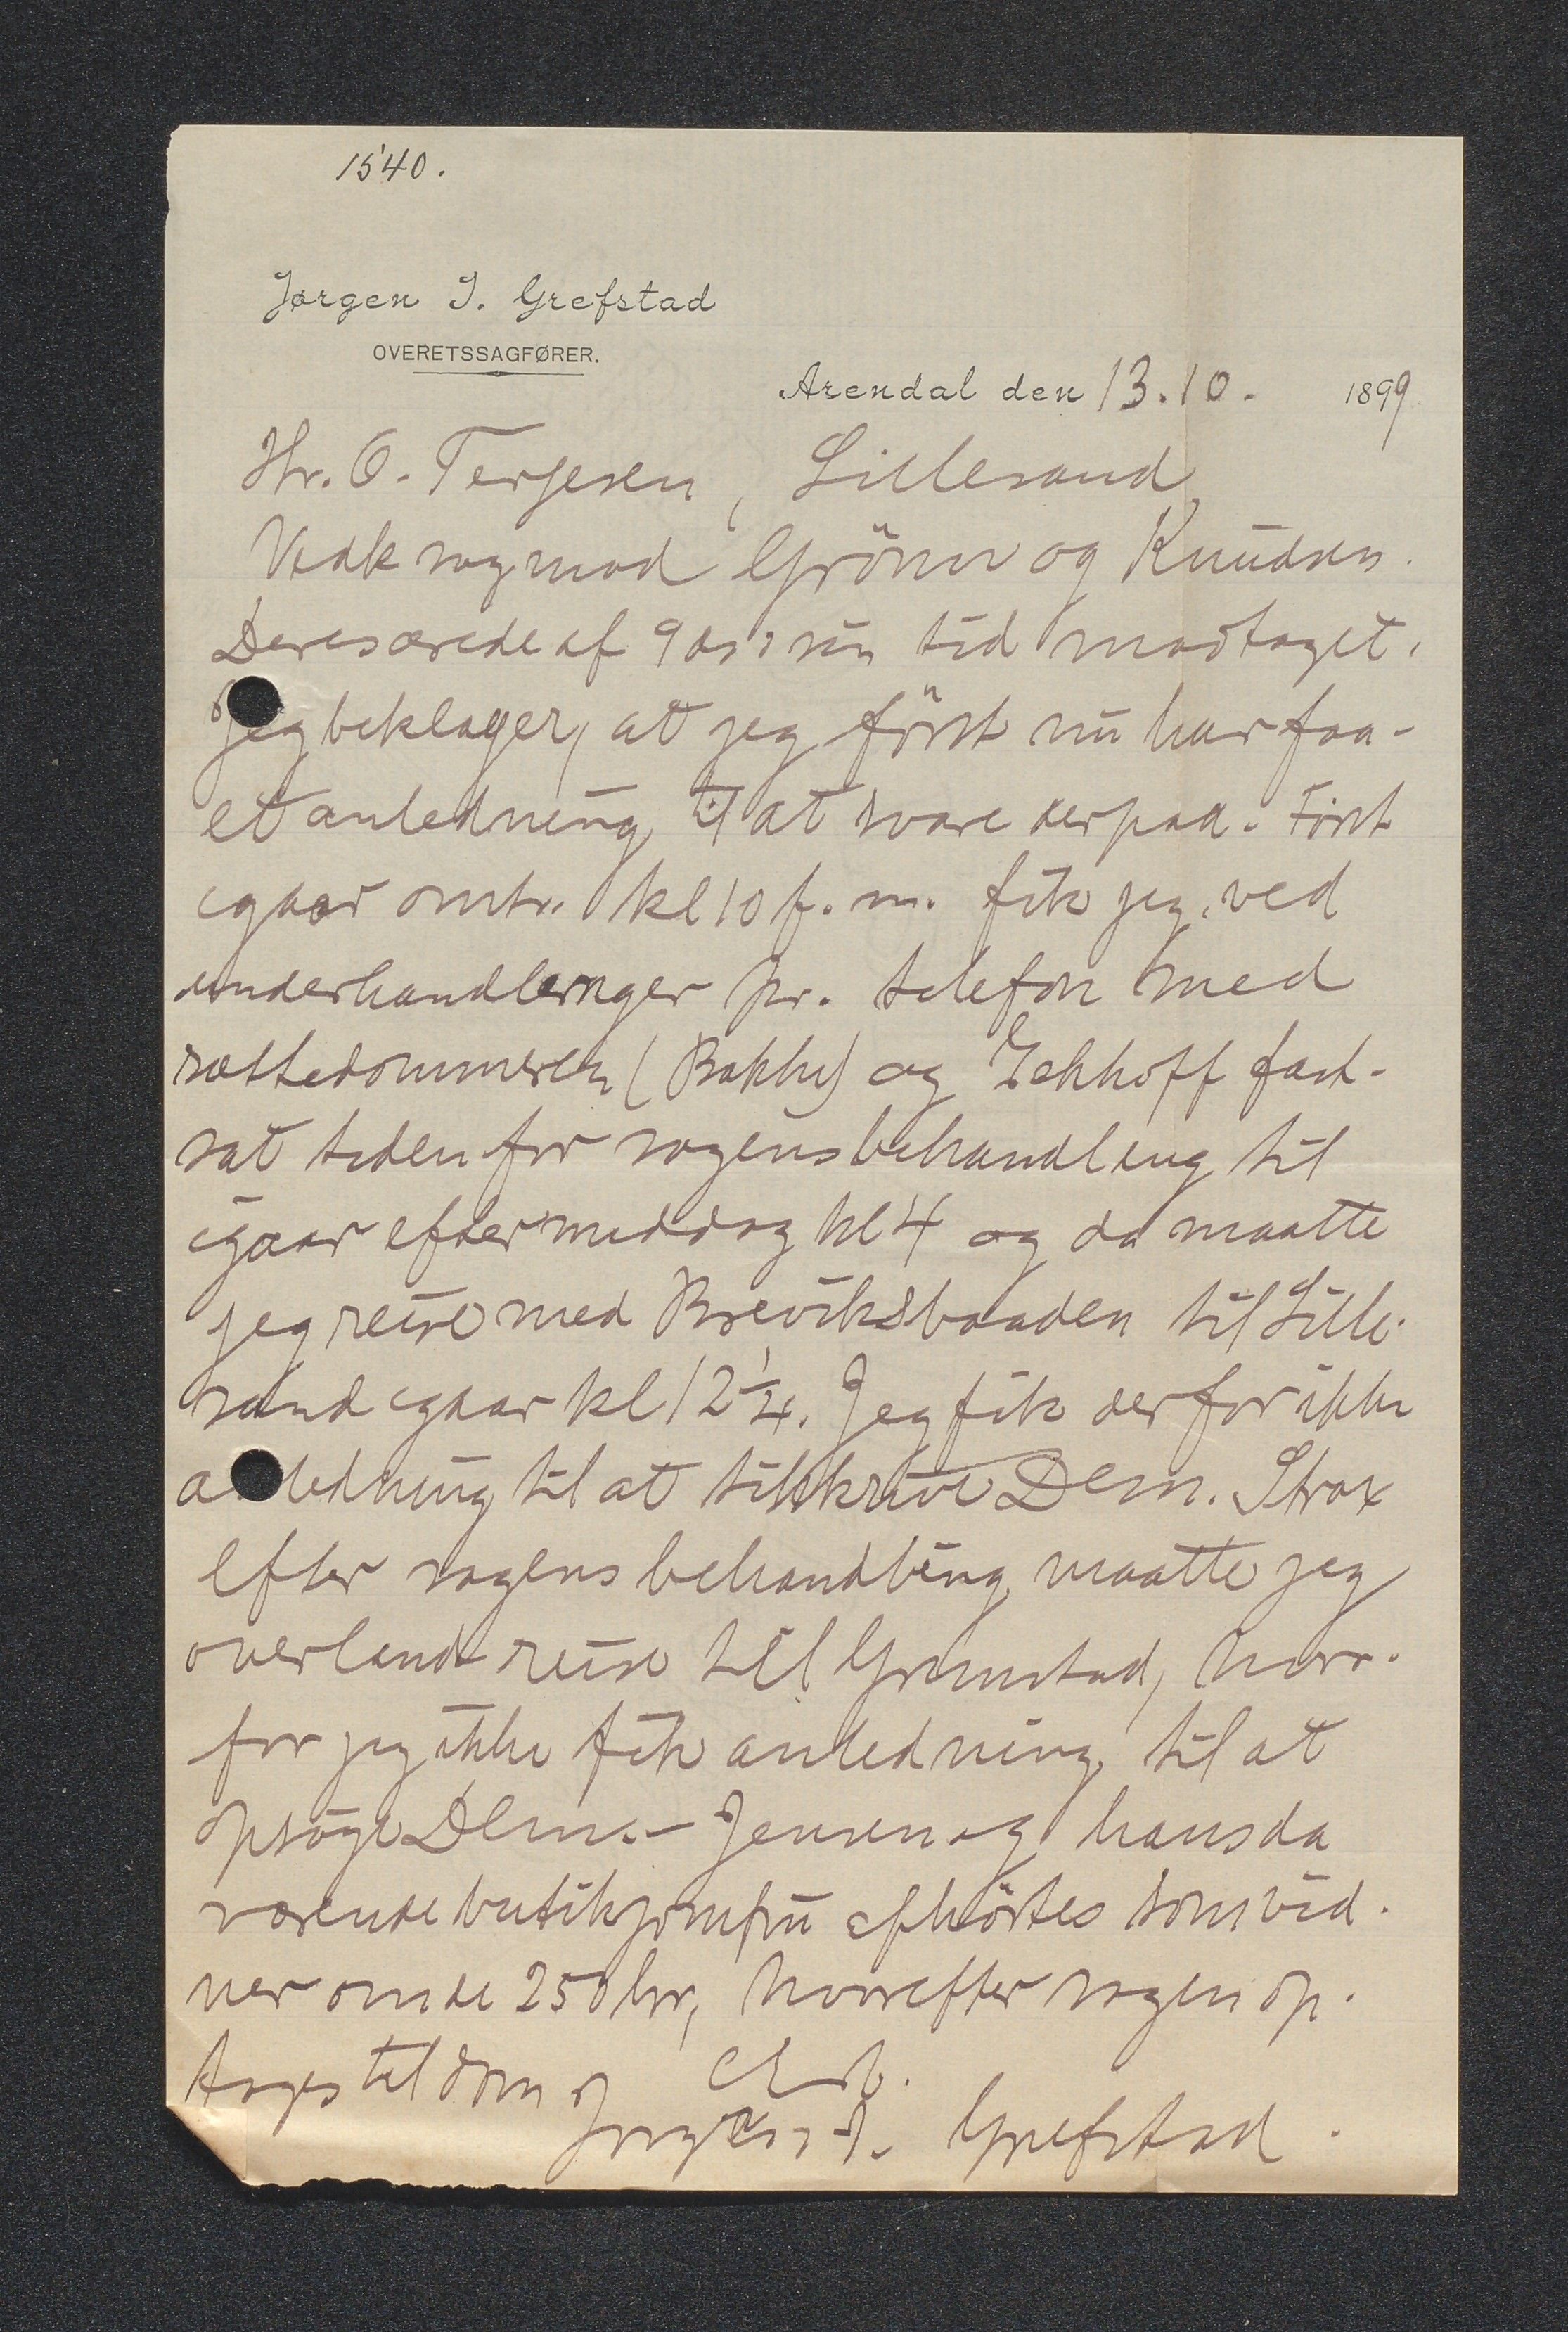 1540.
Jørgen I. Grefstad
OVERETSSAGFØRER.
Arendal den 13.10. 1899
Hr. O. Terjesen, Lillesand,
Vedk sag mod Grönn og Knudsen.
Deres ærede af 9 ds i sin tid modtaget.
Jeg beklager, at jeg först nu har faa-
et anledning til at svare derpaa. Först
igaar omtr. kl 10 f. m. fik jeg ved
underhandlinger pr. telefon med
sættedommeren (Bakke) og Eckhoff fast-
sat tiden for sagens behandling til
igaar eftermiddag kl 4 og da maatte
jeg reise med Breviksbaaden til Lille-
sand igaar kl 12 1/4. Jeg fik derfor ikke
anledning til at tilskrive Dem. Strax
efter sagens behandling maatte jeg
overland reise til Grimstad, hvor-
for jeg ikke fik anledning til at
opsöge Dem. – Jensen og hans da
værende butikjomfru afhörtes som vid-
ner om de 250 kr, hvorefter sagen op-
toges til dom
Jørgen I. Grefstad.